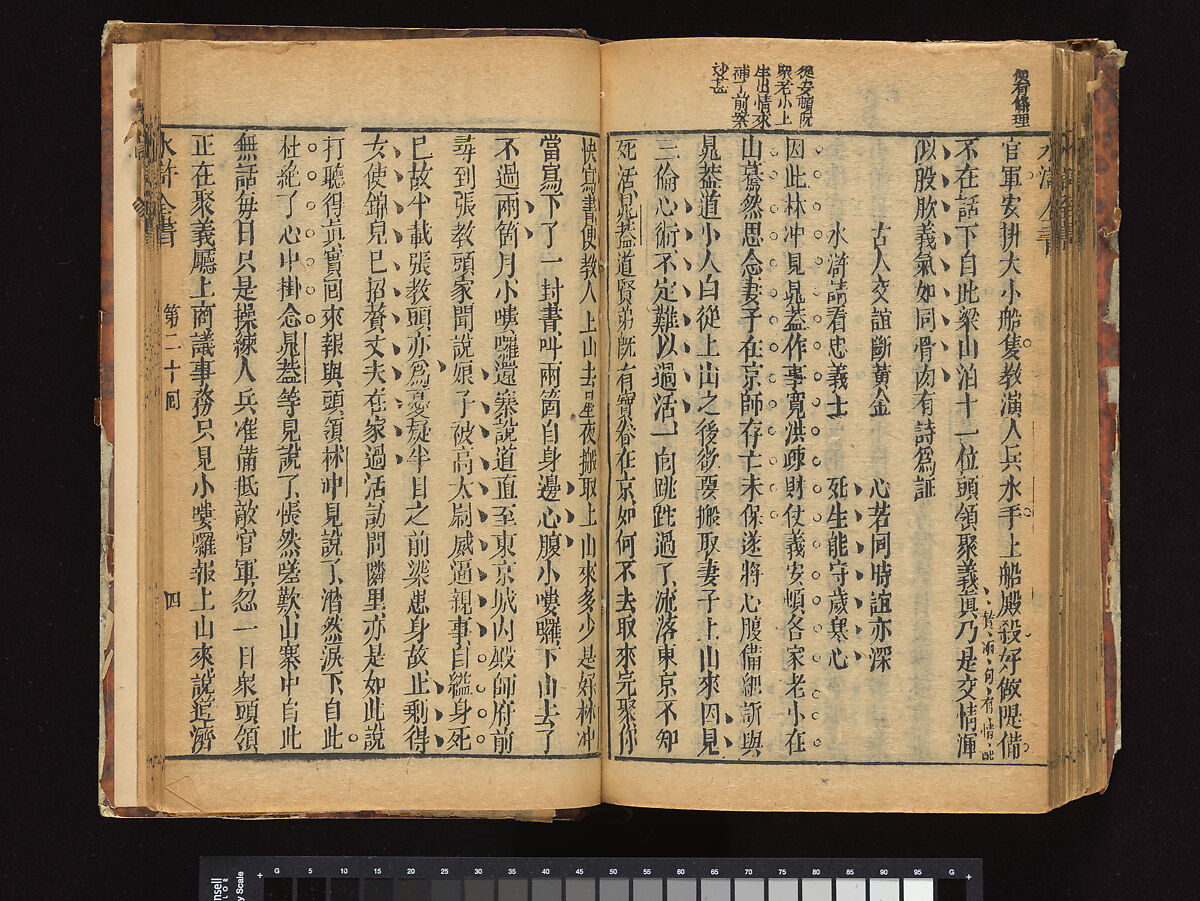 便有條理
官軍安排大小船隻教演人兵水手上船厮殺好做隄備
不在話下自此梁山泊十一位頭領聚義真乃是交情渾
似股肱義氣如同骨肉有詩為証
古人交誼斷黃金 心若同時誼亦深
水滸請看忠義士 死生能守歲寒心
從安頓阮
衆老小上
生出情來
補丁前案
妙甚
因此林冲見晁蓋作事寬洪疎財仗義安頓各家老小在
山驀然思念妻子在京師存亡未保遂將心腹備細訴與
晁蓋道小人自從上山之後欲要搬取妻子上山來因見
王倫心術不定難以過活一向蹉跎過了流落東京不知
死活晁蓋道賢弟既有寶眷在京如何不去取來完聚你
快寫書便教人上山去星夜搬取上山來多少是好林冲
當寫下了一封書叫兩箇自身邊心腹小嘍囉下山去了
不過兩箇月小嘍囉還寨說道直至東京城内殿師府前
尋到張教頭家聞說娘子被高太尉威逼親事自縊身死
已故半載張教頭亦為憂疑半月之前染患身故止剩得
女使錦兒已招贅丈夫在家過活訪問隣里亦是如此說
打聽得真實回來報與頭領林冲見說了潸然淚下自此
杜絶了心中掛念晁蓋等見說了悵然嗟歎山寨中自此
無話每日只是操練人兵准備抵敵官軍忽一日衆頭領
正在聚義廳上商議事務只見小嘍囉報上山來說道濟
水滸全書 第二十回 四